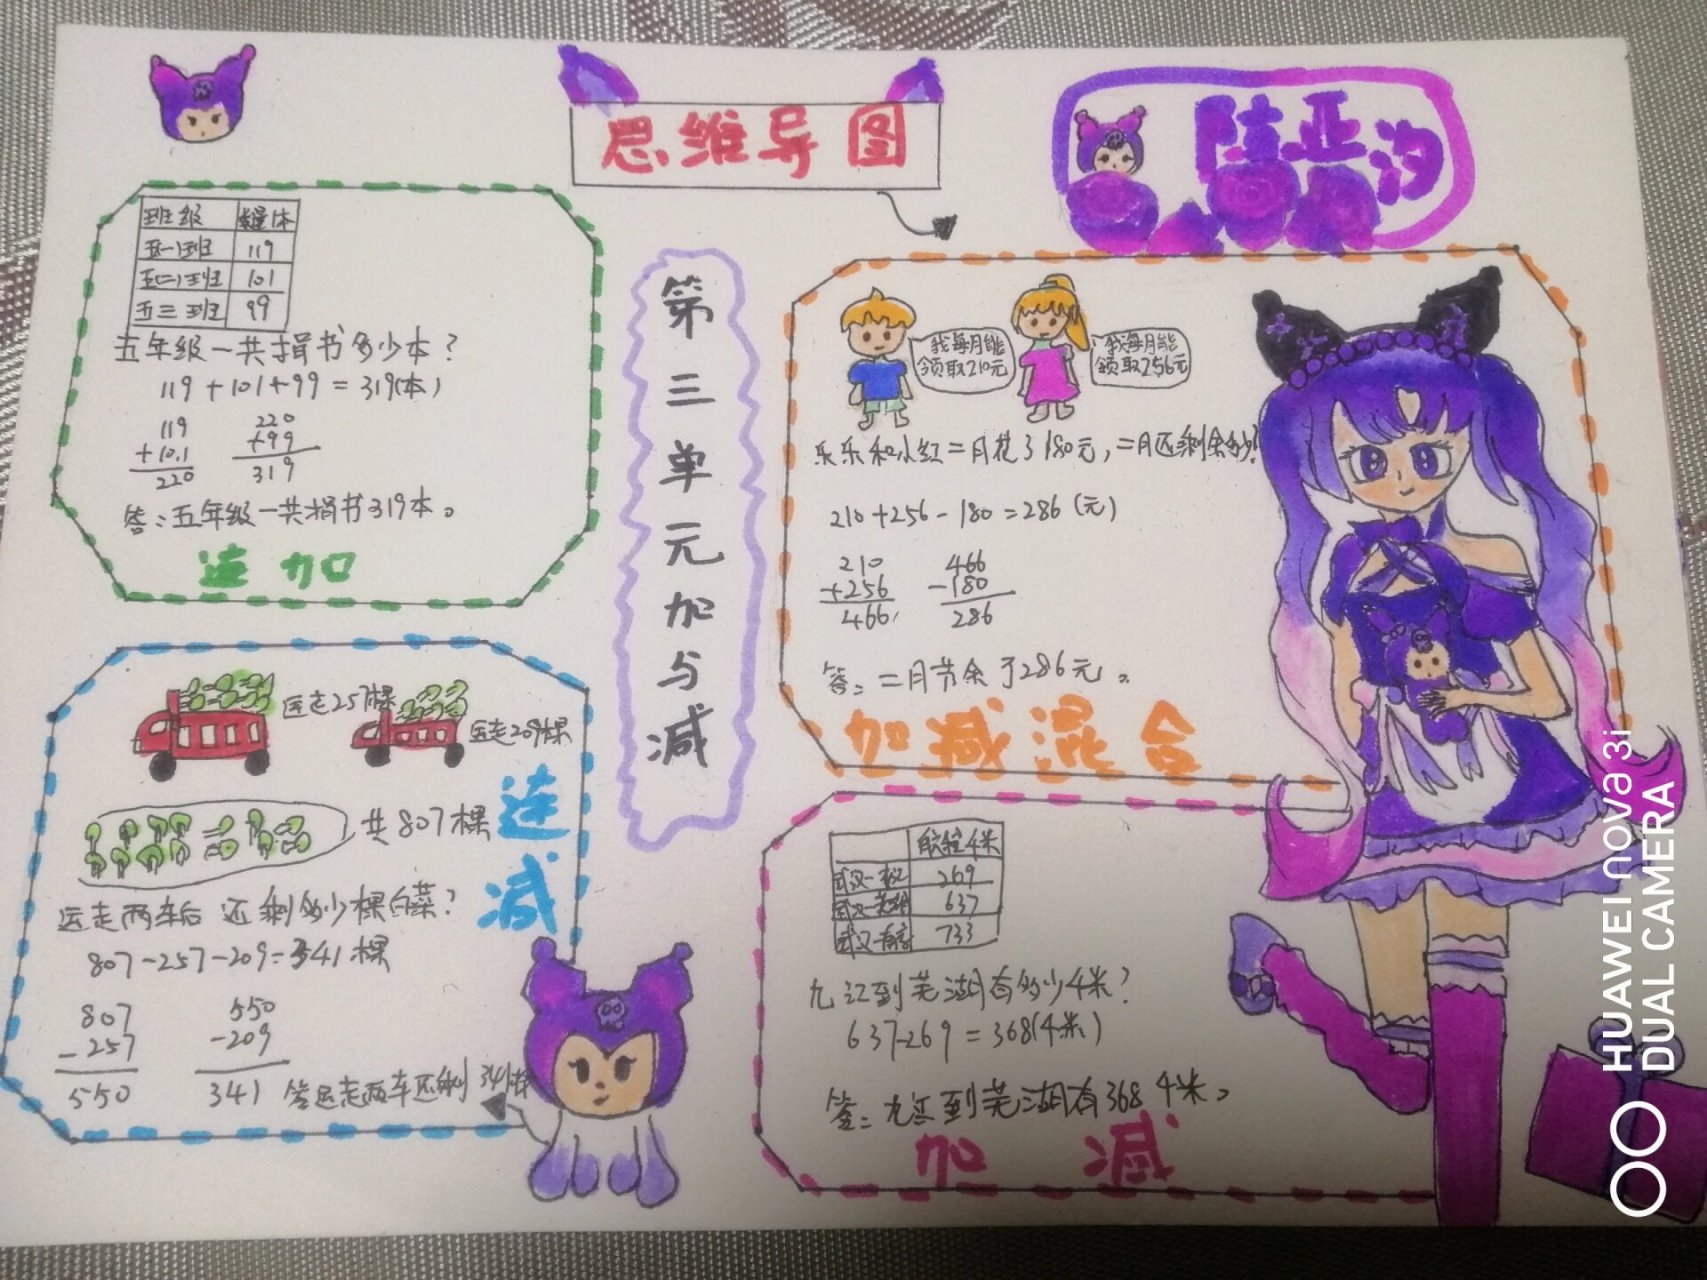 思维导图
陆亚汐
第三单元加与减
班级 数量/本
五一班 119
五二班 101
五三班 99
五年级一共捐书多少本？
119+101+99=319(本)
119
+101
220
220
+99
319
答：五年级一共捐书319本。
连加
我每月能
领取210元
我每月能
领取256元
乐乐和小红二月花了180元，二月还剩余多少？
210+256-180=286(元)
210
+256
466
466
-180
286
答：二月节余了286元。
加减混合
运走257棵
运走209棵
共807棵
连减
运走两车后还剩多少棵白菜？
807-257-209=341棵
807
-257
550
550
-209
341
答运走两车还剩341棵
航程/千米
269
637
733
九江到芜湖有多少千米？
637-269=368(千米)
答：九江到芜湖有368千米。
加减
HUAWEI nova 3i
DUAL CAMERA